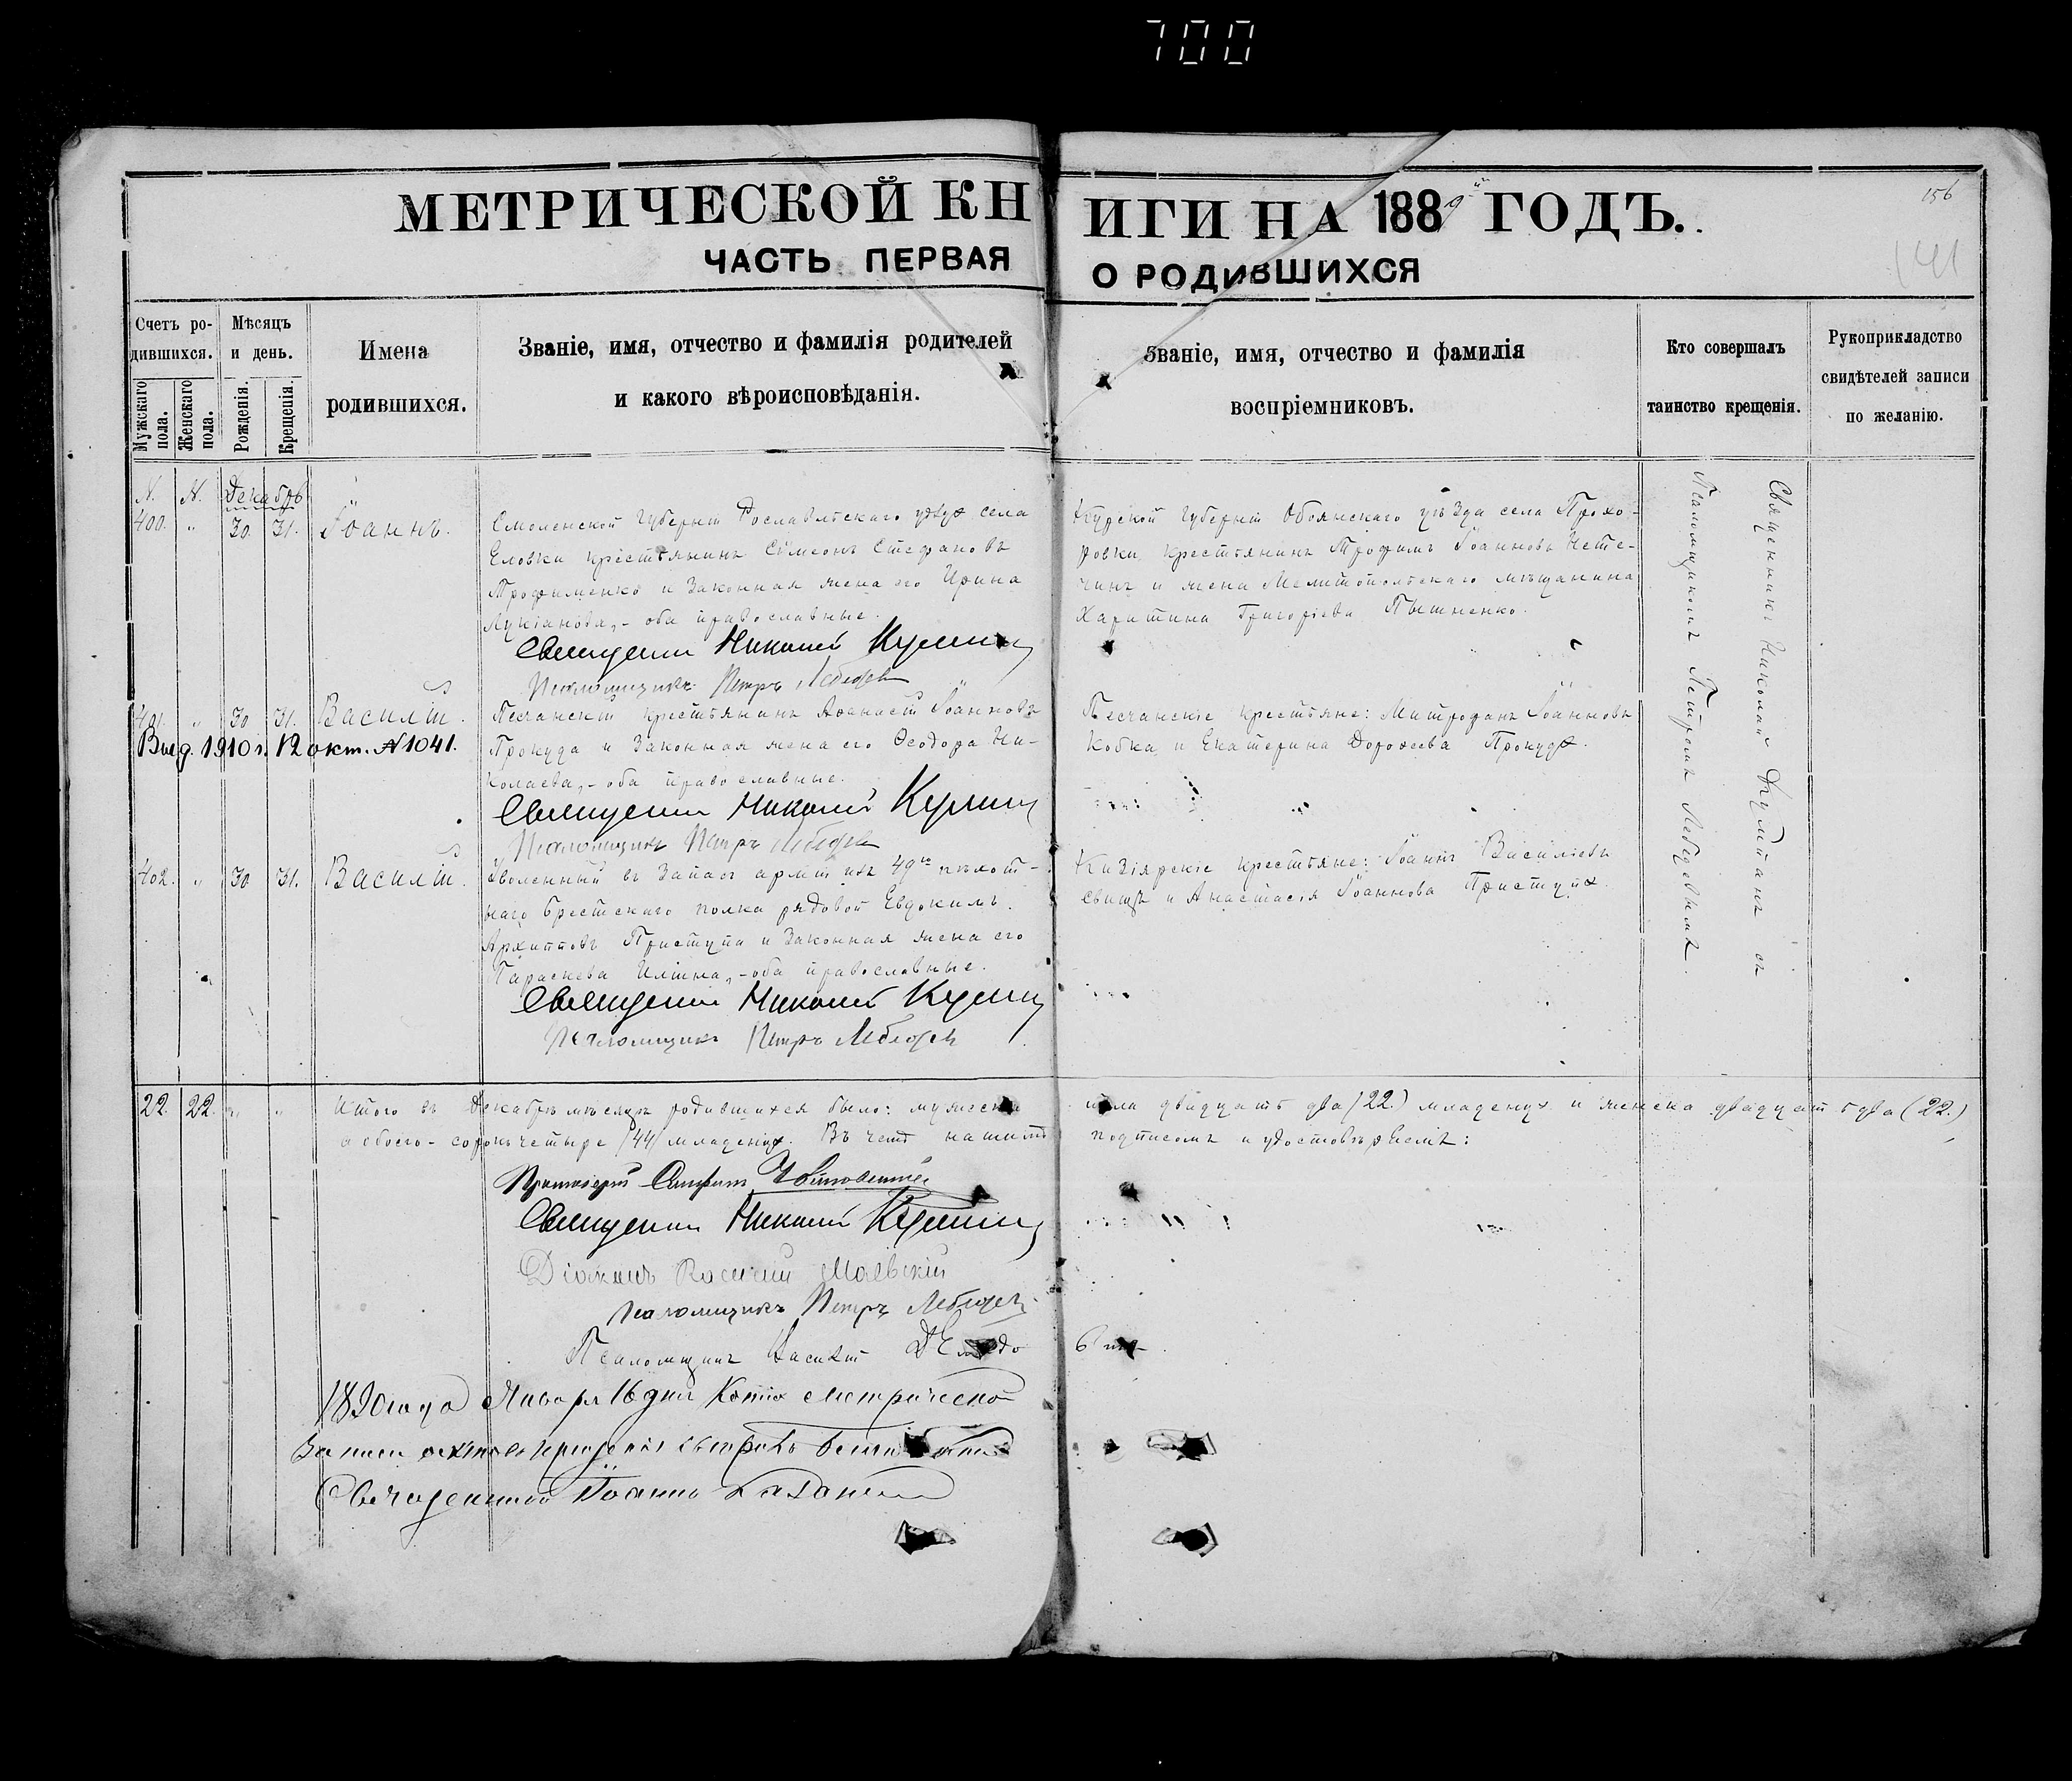 700
МЕТРИЧЕСКОЙ КНИГИ НА 1889й ГОДЪ.
156
141
ЧАСТЬ ПЕРВАЯ О РОДИВШИХСЯ
Счетъ родившихся.
Мужскаго пола.
Женскаго пола.
Мѣсяцъ и день.
Рожденія.
Крещенія.
Имена родившихся.
Званіе, имя, отчество и фамилія родителей
и какого вѣроисповѣданія.
Званіе, имя, отчество и фамилія
воспріемниковъ.
Кто совершалъ
таинство крещенія.
Рукоприкладство
свидѣтелей записи
по желанію.
N. N. Декабрь
400. " 30. 31. Іоаннъ.
Смоленской губерніи Рославльскаго уѣзда села
Еловки крестьянинъ Сѵмеонъ Стефановъ
Трофименко и законная жена его Ирина
Лукіанова,- оба православные.
Священникъ Николай
Псаломщикъ Петръ Лебедевъ
Курской губерніи Обоянскаго уѣзда села Прохо-
ровки крестьянинъ Трофимъ Іоанновъ Нете-
чинъ и жена Мелитопольскаго мѣщанина
Харитина Григоріева Пышненко.
401. " 30 31. Василій.
Выд. 1910 г. 12 окт. № 1041.
Песчанскій крестьянинъ Аѳанасій Іоанновъ
Прокуда и законная жена его Ѳеодора Ни-
колаева,- оба православные.
Священникъ Николай
Псаломщикъ Петръ Лебедевъ
Песчанскіе крестьяне: Митрофанъ Іоанновъ
Кобка и Екатерина Дороѳеева Прокуда.
402. " 30 31. Василій.
Уволенный въ запасъ арміи изъ 49го пѣхот-
наго Брестскаго полка рядовой Евдокимъ
Архиповъ Приступа и законная жена его
Параскева Иліина,-оба православные.
Священникъ Николай
Псаломщикъ Петръ Лебедевъ
Кизіярскіе крестьяне: Іоаннъ Василіевъ
и Анастасія Іоаннова Приступа.
Священникъ Николай съ
Псаломщикомъ Петромъ Лебедевымъ.
22. 22. " " Итого въ Декабрѣ мѣсяцѣ родившихся было: мужеска пола двадцать два (22.) младенца и женска двадцать два (22.)
а обоего - сорокъ четыре (44) младенца. Въ чемъ нашимъ подписомъ и удостовѣряемъ:
Протоіерей
Священникъ Николай
Діаконъ Василій Маевскій
Псаломщикъ Петръ Лебедевъ
Псаломщикъ Василій
1890 года Января 16 дня Копію метрической
записи
Іоаннъ